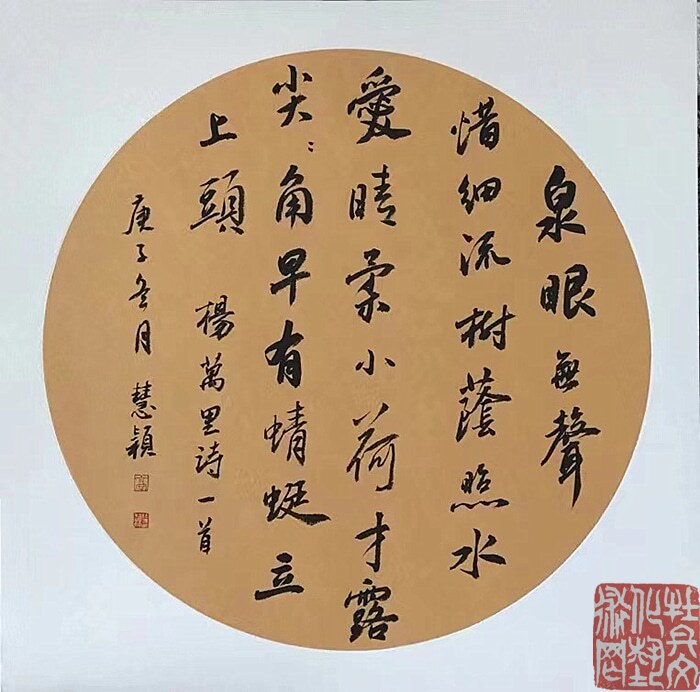 泉眼無聲
惜細流樹蔭照水
愛晴柔小荷才露
尖〻角早有蜻蜓立
上頭 楊萬里詩一首
庚子冬月 慧穎